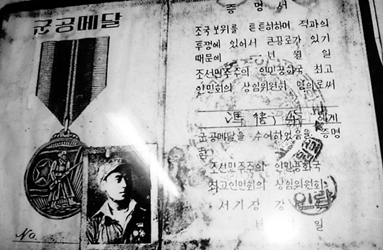 군공메달
No.
증명서
조국보위를 튼튼히하며 적과의
투쟁에 있어서 큰공로가 있기
때문에 년 월 일
조선민주주의 인민공화국 최고
인민회의 상임위원회 명의로써
에게
군공메달을 수여하였음을 증명
함
조선민주주의 인민공화국
최고인민회의 상임위원회
서기장 강
년 월 일